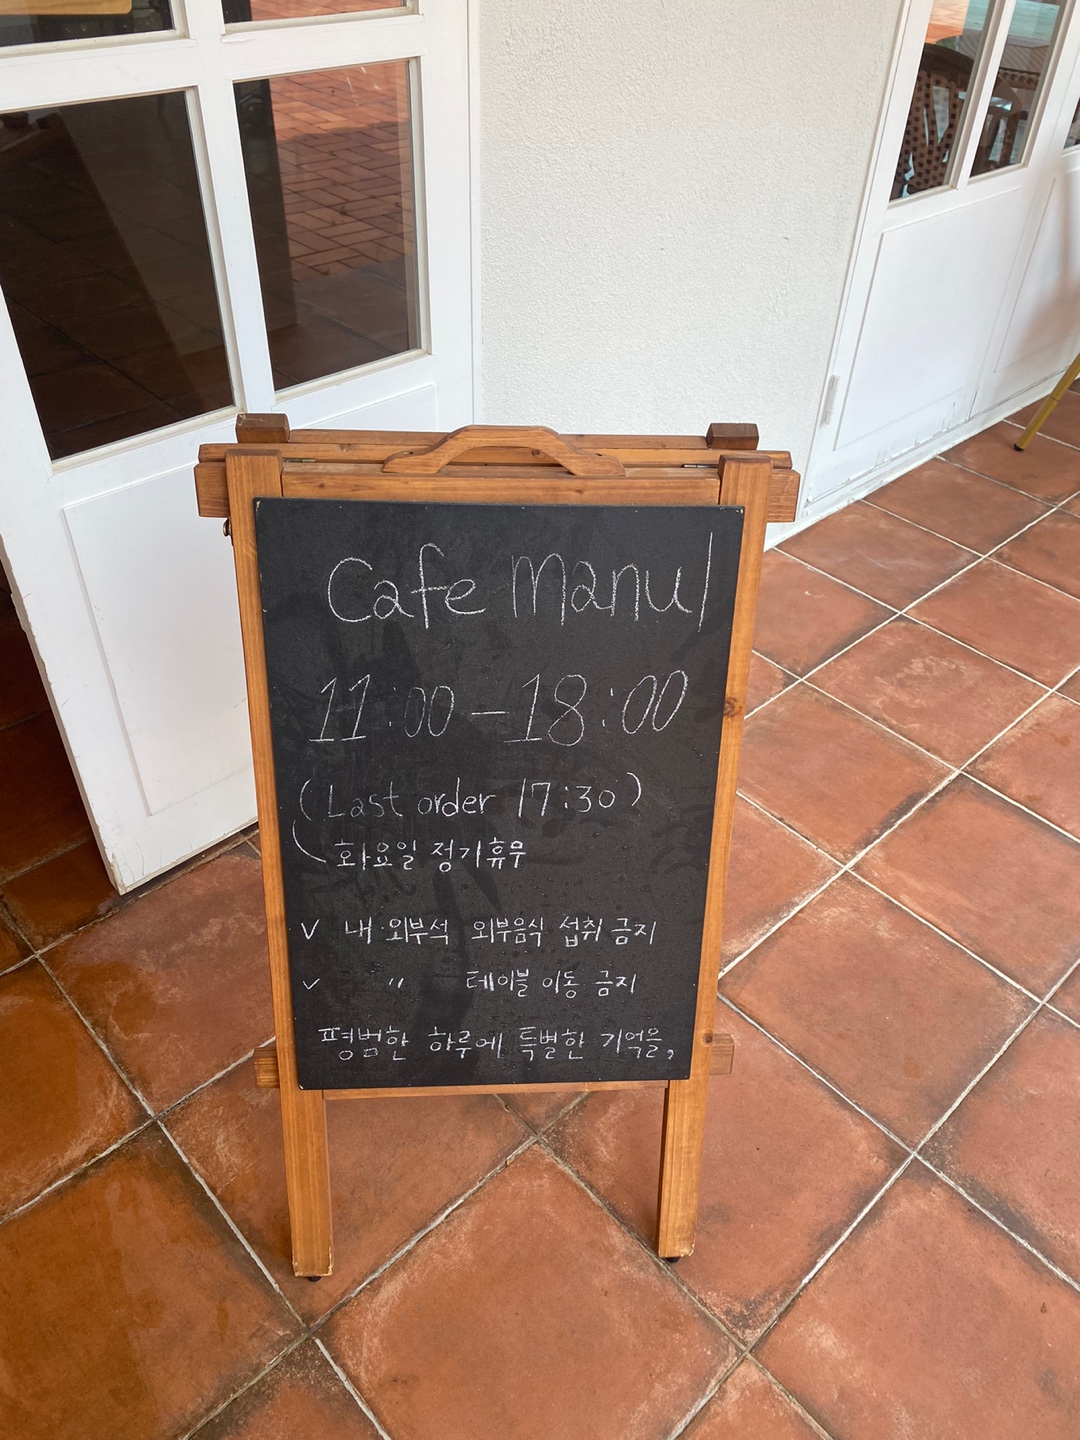 Cafe Manul
11:00 - 18:00
(Last order 17:30)
화요일 정기휴무
✓ 내·외부석 외부음식 섭취 금지
✓ 〃 테이블 이동 금지
평범한 하루에 특별한 기억을,